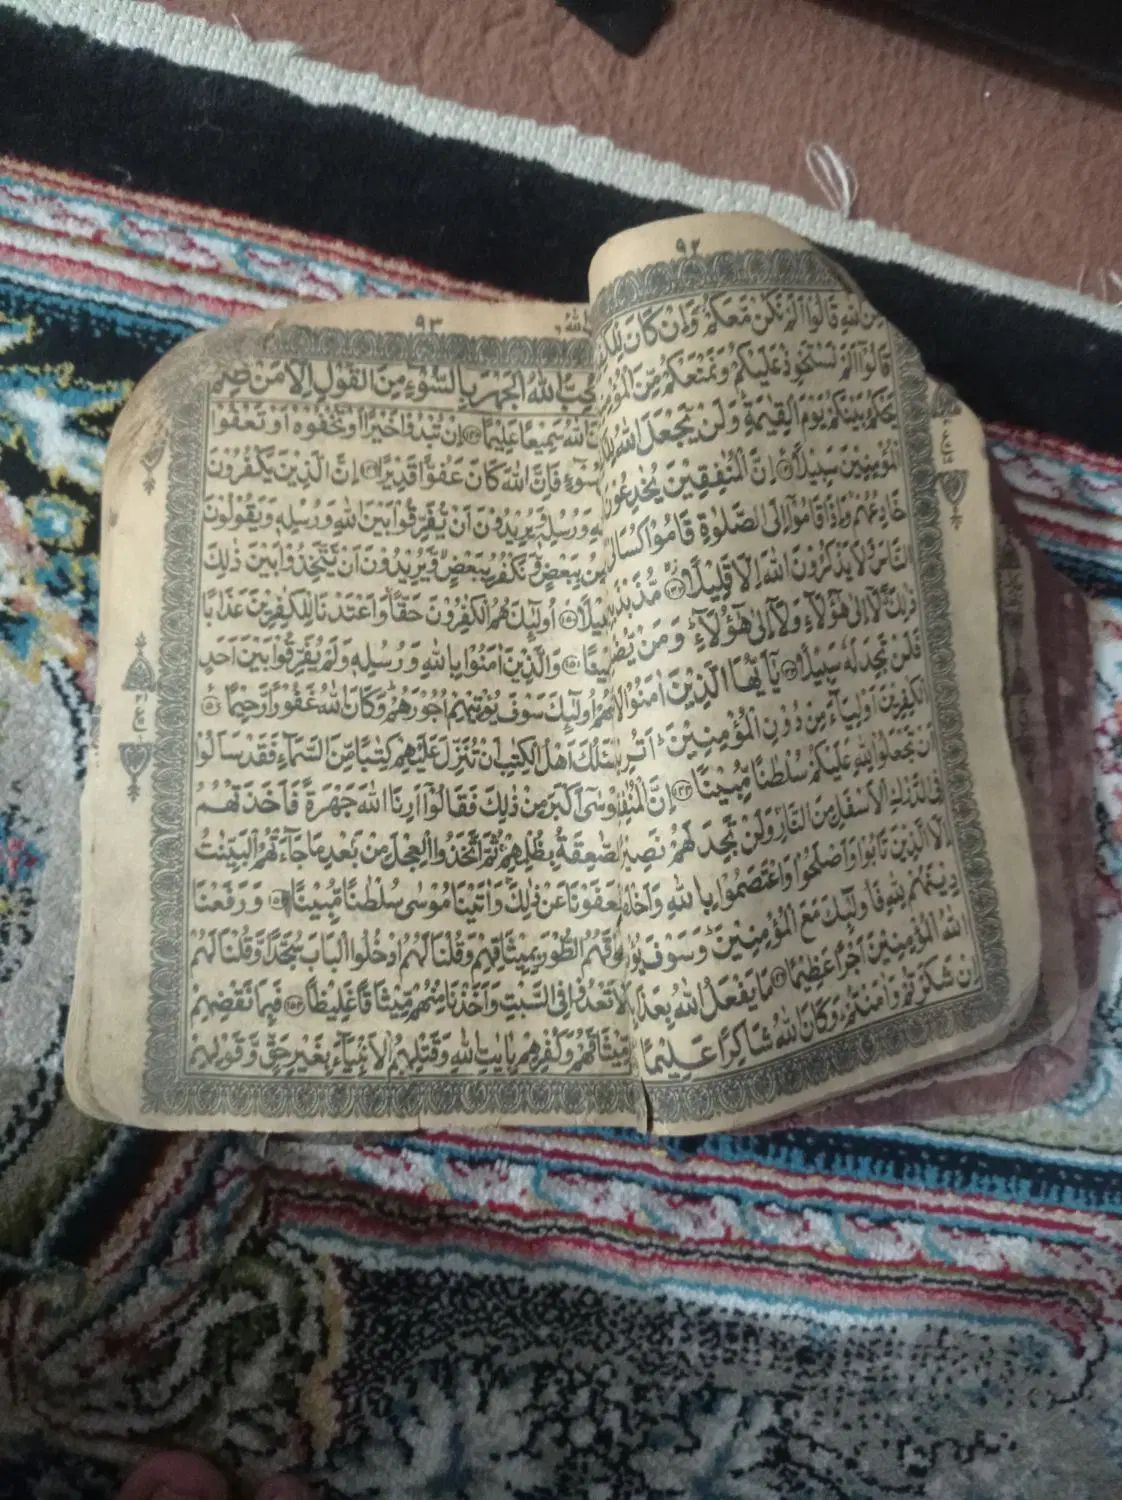 ٩٢
مِنَ اللهِ قَالُوْٓا اَلَمْ نَكُنْ مَّعَكُمْ وَاِنْ كَانَ
قَالُوْٓا اَلَمْ نَسْتَحْوِذْ عَلَيْكُمْ وَنَمْنَعْكُمْ مِّنَ
يَحْكُمُ بَيْنَكُمْ يَوْمَ الْقِيٰمَةِ وَلَنْ يَّجْعَلَ اللهُ
الْمُؤْمِنِيْنَ سَبِيْلًا اِنَّ الْمُنٰفِقِيْنَ يُخٰدِعُوْنَ
خَادِعُهُمْ وَاِذَا قَامُوْٓا اِلَى الصَّلٰوةِ قَامُوْا
النَّاسَ وَلَا يَذْكُرُوْنَ اللهَ اِلَّا قَلِيْلًا
ذٰلِكَ لَآ اِلٰى هٰٓؤُلَآءِ وَلَآ اِلٰى هٰٓؤُلَآءِ وَمَنْ
فَلَنْ تَجِدَ لَهٗ سَبِيْلًا يٰٓاَيُّهَا الَّذِيْنَ اٰمَنُوْا لَا
الْكٰفِرِيْنَ اَوْلِيَآءَ مِنْ دُوْنِ الْمُؤْمِنِيْنَ
اَنْ تَجْعَلُوْا لِلّٰهِ عَلَيْكُمْ سُلْطٰنًا مُّبِيْنًا اِنَّ
فِى الدَّرْكِ الْاَسْفَلِ مِنَ النَّارِ وَلَنْ تَجِدَ لَهُمْ
اِلَّا الَّذِيْنَ تَابُوْا وَاَصْلَحُوْا وَاعْتَصَمُوْا بِاللهِ
دِيْنَهُمْ لِلّٰهِ فَاُولٰٓئِكَ مَعَ الْمُؤْمِنِيْنَ وَسَوْفَ
اللهُ الْمُؤْمِنِيْنَ اَجْرًا عَظِيْمًا مَا يَفْعَلُ اللهُ
اِنْ شَكَرْتُمْ وَاٰمَنْتُمْ وَكَانَ اللهُ شَاكِرًا عَلِيْمًا
٩٣
اللهُ الْجَهْرَ بِالسُّوْٓءِ مِنَ الْقَوْلِ اِلَّا مَنْ ظُلِمَ
اللهُ سَمِيْعًا عَلِيْمًا اِنْ تُبْدُوْا خَيْرًا اَوْ تُخْفُوْهُ اَوْ تَعْفُوْا
سُوْٓءٍ فَاِنَّ اللهَ كَانَ عَفُوًّا قَدِيْرًا اِنَّ الَّذِيْنَ يَكْفُرُوْنَ
وَرُسُلِهٖ وَيُرِيْدُوْنَ اَنْ يُّفَرِّقُوْا بَيْنَ اللهِ وَرُسُلِهٖ وَيَقُوْلُوْنَ
بِبَعْضٍ وَّنَكْفُرُ بِبَعْضٍ وَّيُرِيْدُوْنَ اَنْ يَّتَّخِذُوْا بَيْنَ ذٰلِكَ
اُولٰٓئِكَ هُمُ الْكٰفِرُوْنَ حَقًّا وَاَعْتَدْنَا لِلْكٰفِرِيْنَ عَذَابًا
وَالَّذِيْنَ اٰمَنُوْا بِاللهِ وَرُسُلِهٖ وَلَمْ يُفَرِّقُوْا بَيْنَ اَحَدٍ
اُولٰٓئِكَ سَوْفَ يُؤْتِيْهِمْ اُجُوْرَهُمْ وَكَانَ اللهُ غَفُوْرًا رَّحِيْمًا
اَهْلُ الْكِتٰبِ اَنْ تُنَزِّلَ عَلَيْهِمْ كِتٰبًا مِّنَ السَّمَآءِ فَقَدْ سَاَلُوْا
مُوْسٰٓى اَكْبَرَ مِنْ ذٰلِكَ فَقَالُوْٓا اَرِنَا اللهَ جَهْرَةً فَاَخَذَتْهُمُ
الصّٰعِقَةُ بِظُلْمِهِمْ ثُمَّ اتَّخَذُوا الْعِجْلَ مِنْۢ بَعْدِ مَا جَآءَتْهُمُ الْبَيِّنٰتُ
فَعَفَوْنَا عَنْ ذٰلِكَ وَاٰتَيْنَا مُوْسٰى سُلْطٰنًا مُّبِيْنًا وَرَفَعْنَا
فَوْقَهُمُ الطُّوْرَ بِمِيْثَاقِهِمْ وَقُلْنَا لَهُمُ ادْخُلُوا الْبَابَ سُجَّدًا وَّقُلْنَا لَهُمْ
لَا تَعْدُوْا فِى السَّبْتِ وَاَخَذْنَا مِنْهُمْ مِّيْثَاقًا غَلِيْظًا فَبِمَا نَقْضِهِمْ
مِّيْثَاقَهُمْ وَكُفْرِهِمْ بِاٰيٰتِ اللهِ وَقَتْلِهِمُ الْاَنْۢبِيَآءَ بِغَيْرِ حَقٍّ وَّقَوْلِهِمْ